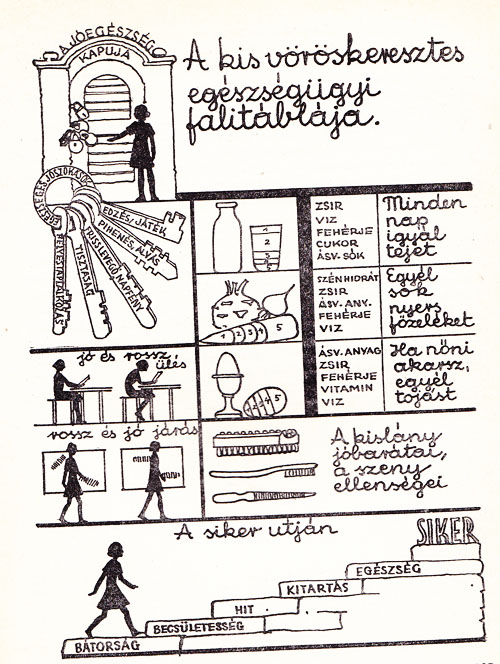 A JÓEGÉSZSÉG
KAPUJA
A kis vöröskeresztes
egészségügyi
falitáblája.
EGÉSZSÉGES JÓSZOKÁSOK
EDZÉS, JÁTÉK
PIHENÉS, ALVÁS
FRISSLEVEGŐ NAPFÉNY
TISZTASÁG
HELYES TÁPLÁLKOZÁS
1
2
3
4
ZSIR
VIZ
FEHÉRJE
CUKOR
ÁSV. SÓK
Minden
nap
igyál
tejet
1 2 3 4 5
SZÉNHIDRÁT
ZSIR
ÁSV. ANY.
FEHÉRJE
VIZ
Egyél
sok
nyers
főzeléket
ÁSV. ANYAG
ZSIR
FEHÉRJE
VITAMIN
VIZ
Ha nőni
akarsz,
egyél
tojást
jó és rossz
ülés
rossz és jó járás
A kislány
jóbarátai,
a szeny
ellenségei
A siker utján
SIKER
EGÉSZSÉG
KITARTÁS
HIT
BECSÜLETESSÉG
BÁTORSÁG